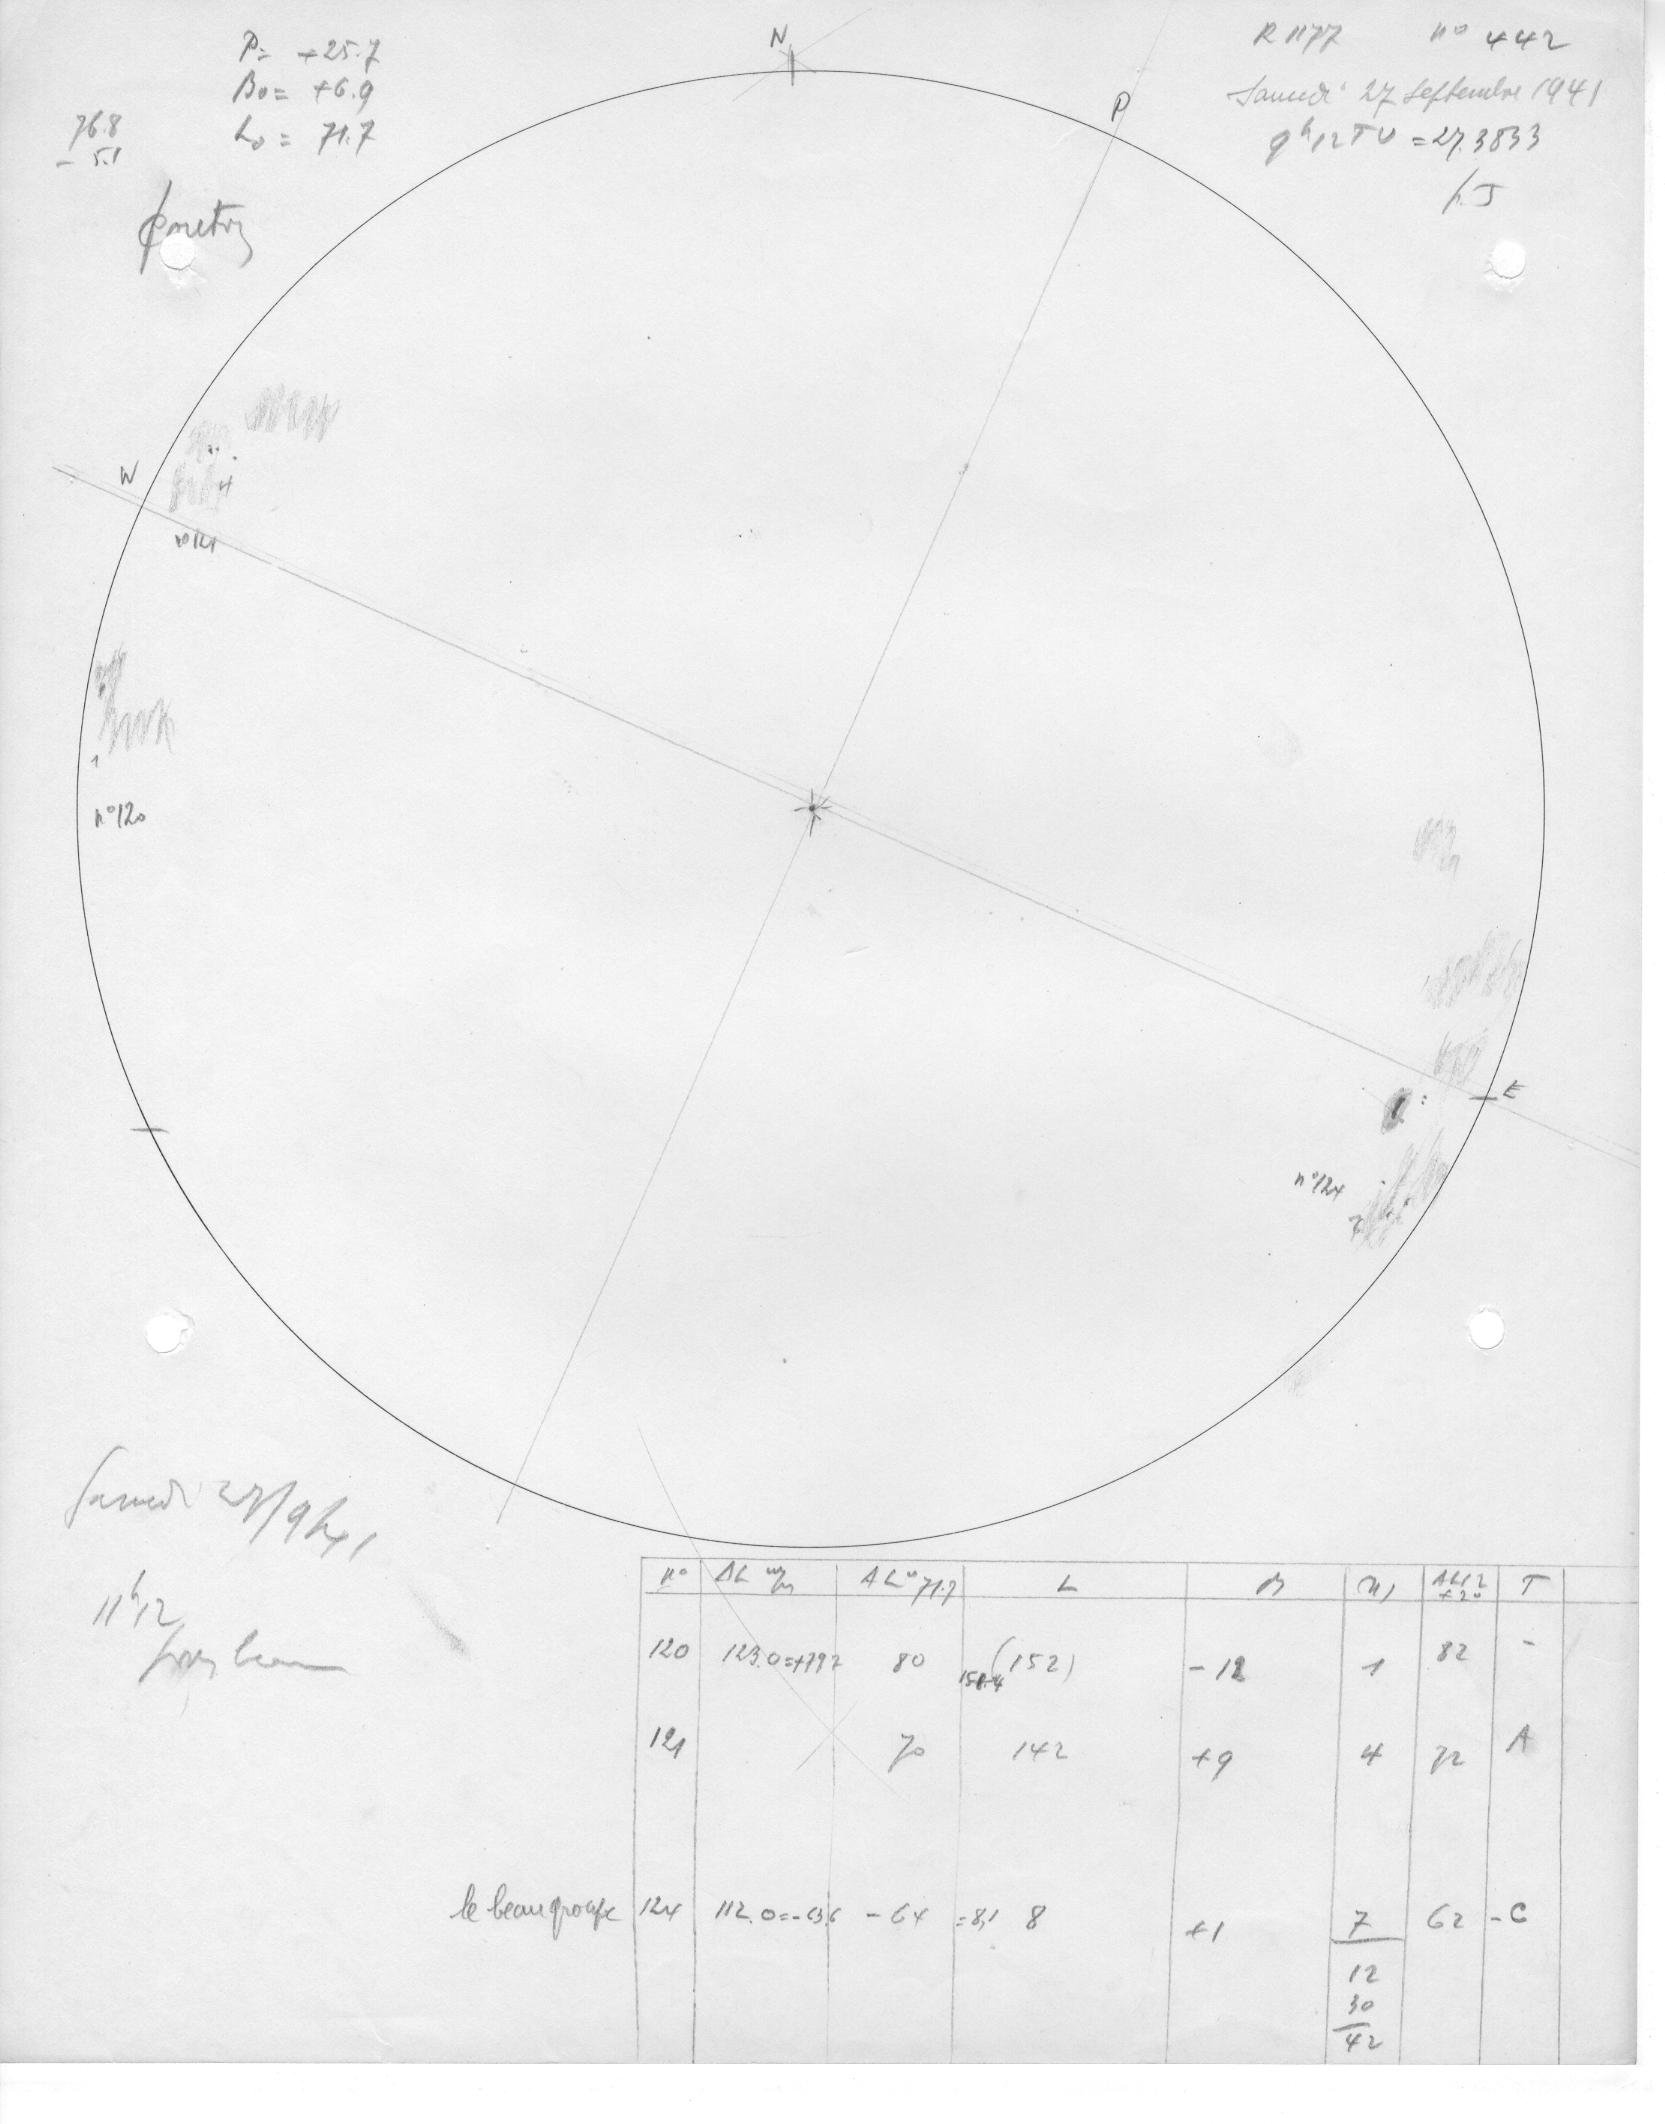 P= +25.7
B₀= +6.9
L₀= 71.7
76.8
- 5.1
N
P
R 1177 n° 442
Samedi 27 Septembre 1941
9h12 TU = 27.3833
W
4
n°121
1
n°120
E
n°124
7
Samedi 27/9/41
11h12
n° ΔL ΔL° 71.7 L n, T
120 123.0=+79.2 80 151.4 (152) -12 1 82 -
121 70 142 +9 4 72 A
le beau groupe 124 112.0=-63.6 -64 =8,1 8 +1 7 62 - C
12
30
42